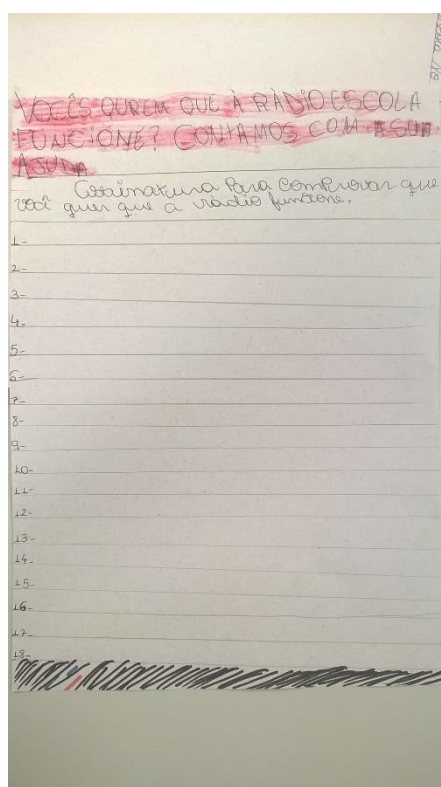 VOCÊS QUREM QUE À RÀDIO ESCOLA
FUNCIONE? CONTAMOS COM A SUA
AJUDA
Assinatura Para Comprovar que
você quer que a rádio funcione.
1-
2-
3-
4-
5-
6-
7-
8-
9-
10-
11-
12-
13-
14-
15-
16-
17-
18-